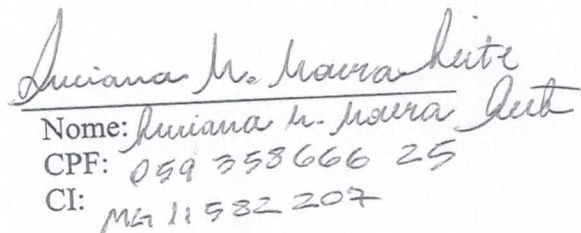 Luciana M. Moura Leite
Nome: Luciana M. Moura Leite
CPF: 059 358666 25
CI: MG 11 582 207